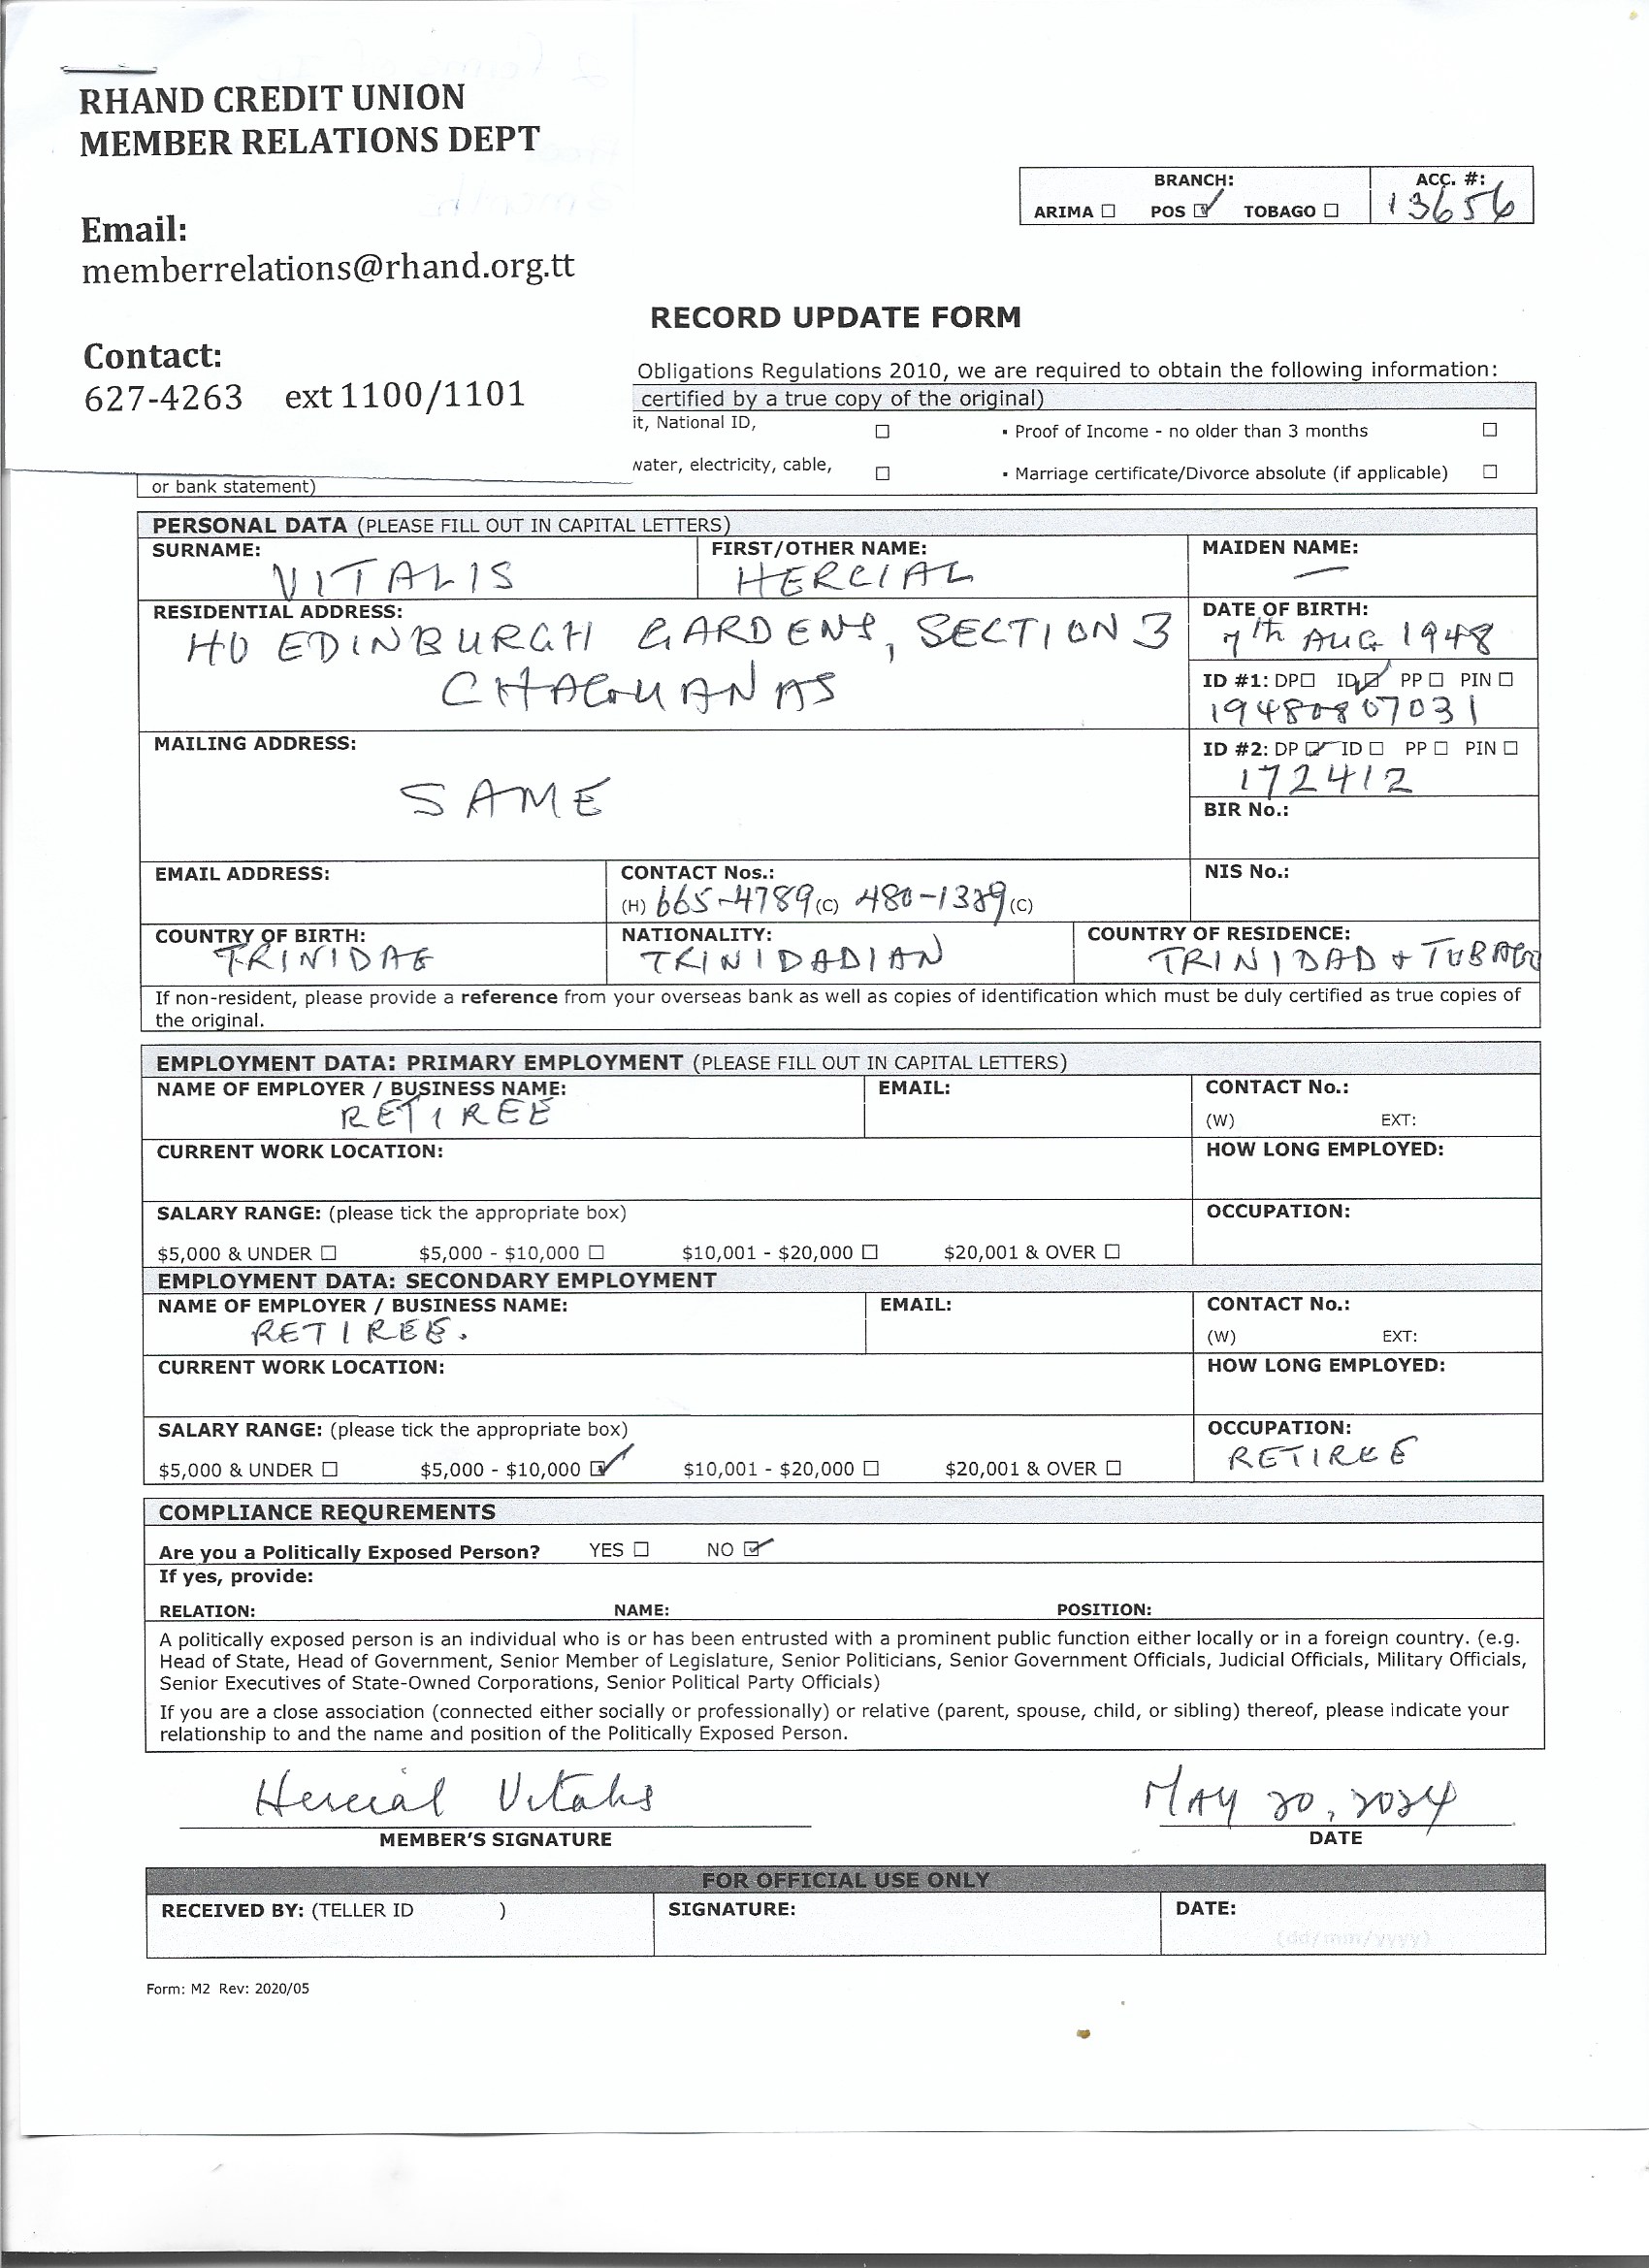 RHAND CREDIT UNION
MEMBER RELATIONS DEPT
Email:
memberrelations@rhand.org.tt
Contact:
627-4263 ext 1100/1101
BRANCH: ACC. #:
ARIMA ☐ POS ☑ TOBAGO ☐ 13656
RECORD UPDATE FORM
Obligations Regulations 2010, we are required to obtain the following information:
certified by a true copy of the original)
it, National ID, ☐ ▪ Proof of Income - no older than 3 months ☐
water, electricity, cable, ☐ ▪ Marriage certificate/Divorce absolute (if applicable) ☐
or bank statement)
PERSONAL DATA (PLEASE FILL OUT IN CAPITAL LETTERS)
SURNAME: FIRST/OTHER NAME: MAIDEN NAME:
VITALIS HERCIAL —
RESIDENTIAL ADDRESS: DATE OF BIRTH:
EDINBURGH GARDENS, SECTION 3 7th AUG 1948
CHAGUANAS
ID #1: DP☐ ID☑ PP ☐ PIN ☐
19480807031
MAILING ADDRESS: ID #2: DP ☑ ID ☐ PP ☐ PIN ☐
SAME 172412
BIR No.:
EMAIL ADDRESS: CONTACT Nos.: NIS No.:
(H) 665-4789 (C) 480-1389 (C)
COUNTRY OF BIRTH: NATIONALITY: COUNTRY OF RESIDENCE:
TRINIDAD TRINIDADIAN TRINIDAD + TOBAGO
If non-resident, please provide a reference from your overseas bank as well as copies of identification which must be duly certified as true copies of
the original.
EMPLOYMENT DATA: PRIMARY EMPLOYMENT (PLEASE FILL OUT IN CAPITAL LETTERS)
NAME OF EMPLOYER / BUSINESS NAME: EMAIL: CONTACT No.:
RETIREE (W) EXT:
CURRENT WORK LOCATION: HOW LONG EMPLOYED:
SALARY RANGE: (please tick the appropriate box) OCCUPATION:
$5,000 & UNDER ☐ $5,000 - $10,000 ☐ $10,001 - $20,000 ☐ $20,001 & OVER ☐
EMPLOYMENT DATA: SECONDARY EMPLOYMENT
NAME OF EMPLOYER / BUSINESS NAME: EMAIL: CONTACT No.:
RETIREE. (W) EXT:
CURRENT WORK LOCATION: HOW LONG EMPLOYED:
SALARY RANGE: (please tick the appropriate box) OCCUPATION:
$5,000 & UNDER ☐ $5,000 - $10,000 ☑ $10,001 - $20,000 ☐ $20,001 & OVER ☐ RETIREE
COMPLIANCE REQUREMENTS
Are you a Politically Exposed Person? YES ☐ NO ☑
If yes, provide:
RELATION: NAME: POSITION:
A politically exposed person is an individual who is or has been entrusted with a prominent public function either locally or in a foreign country. (e.g.
Head of State, Head of Government, Senior Member of Legislature, Senior Politicians, Senior Government Officials, Judicial Officials, Military Officials,
Senior Executives of State-Owned Corporations, Senior Political Party Officials)
If you are a close association (connected either socially or professionally) or relative (parent, spouse, child, or sibling) thereof, please indicate your
relationship to and the name and position of the Politically Exposed Person.
Hercial Vitalis MAY 20, 2024
MEMBER'S SIGNATURE DATE
FOR OFFICIAL USE ONLY
RECEIVED BY: (TELLER ID ) SIGNATURE: DATE:
(dd/mm/yyyy)
Form: M2 Rev: 2020/05